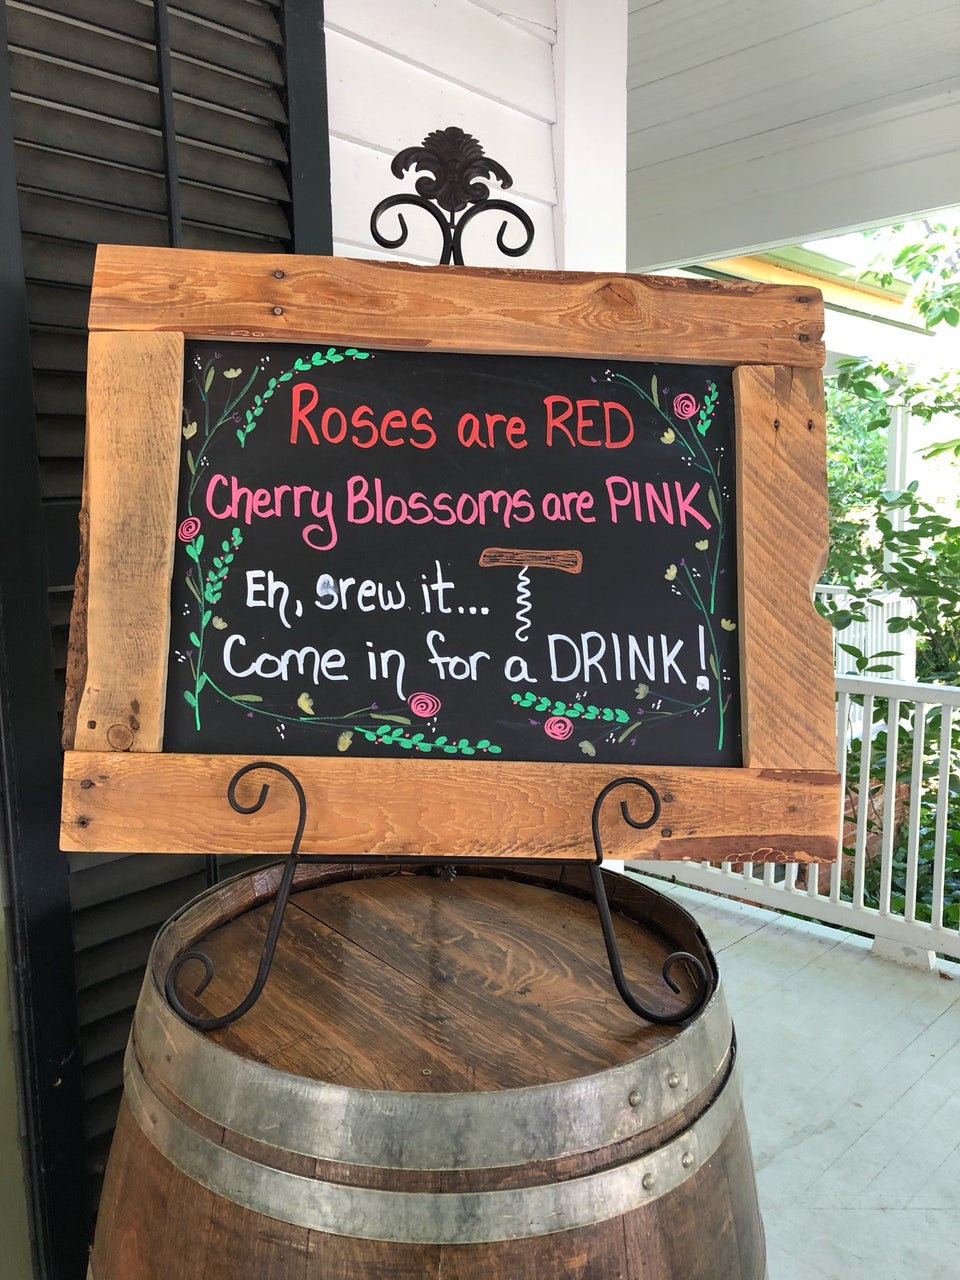 Roses are RED
Cherry Blossoms are PINK
Eh, Srew it...
Come in for a DRINK!